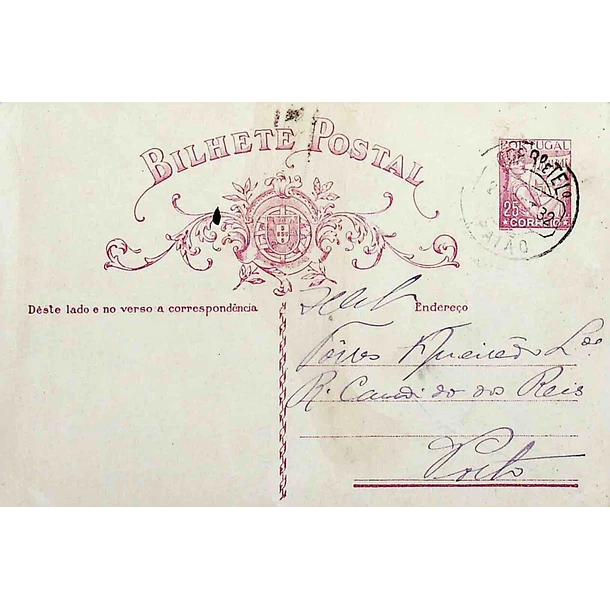 BILHETE POSTAL
PORTUGAL
25
CORREIO
PAIÃO
32
Dêste lado e no verso a correspondência
Endereço
Tôrres Figueirêdo L.da
R. Candido dos Reis
Porto